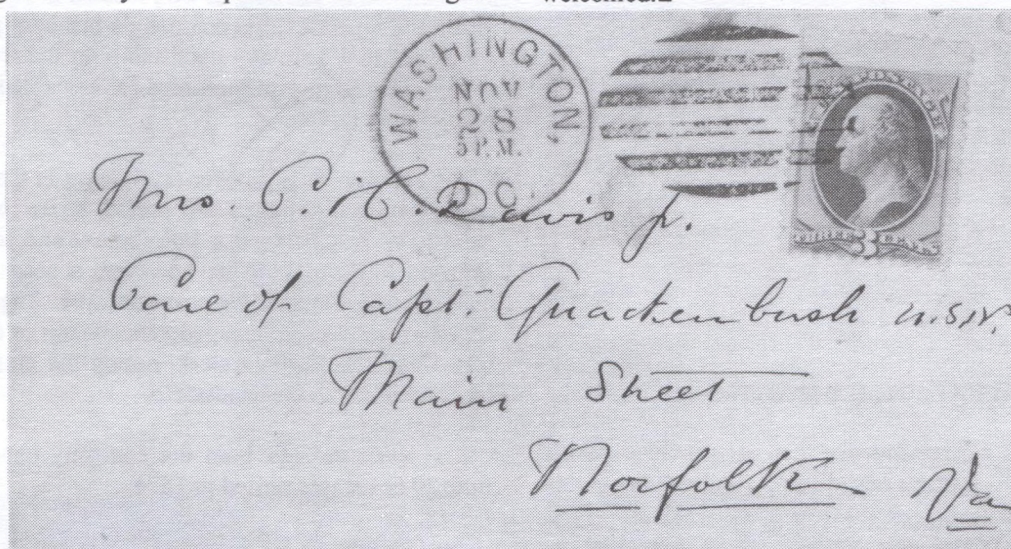 welcomed.
WASHINGTON,
NOV
28
5 P.M.
D.C.
U.S. POSTAGE
THREE 3 CENTS
Mrs. C. H. Davis Jr.
Care of Capt. Quackenbush U.S.N.
Main Street
Norfolk Va